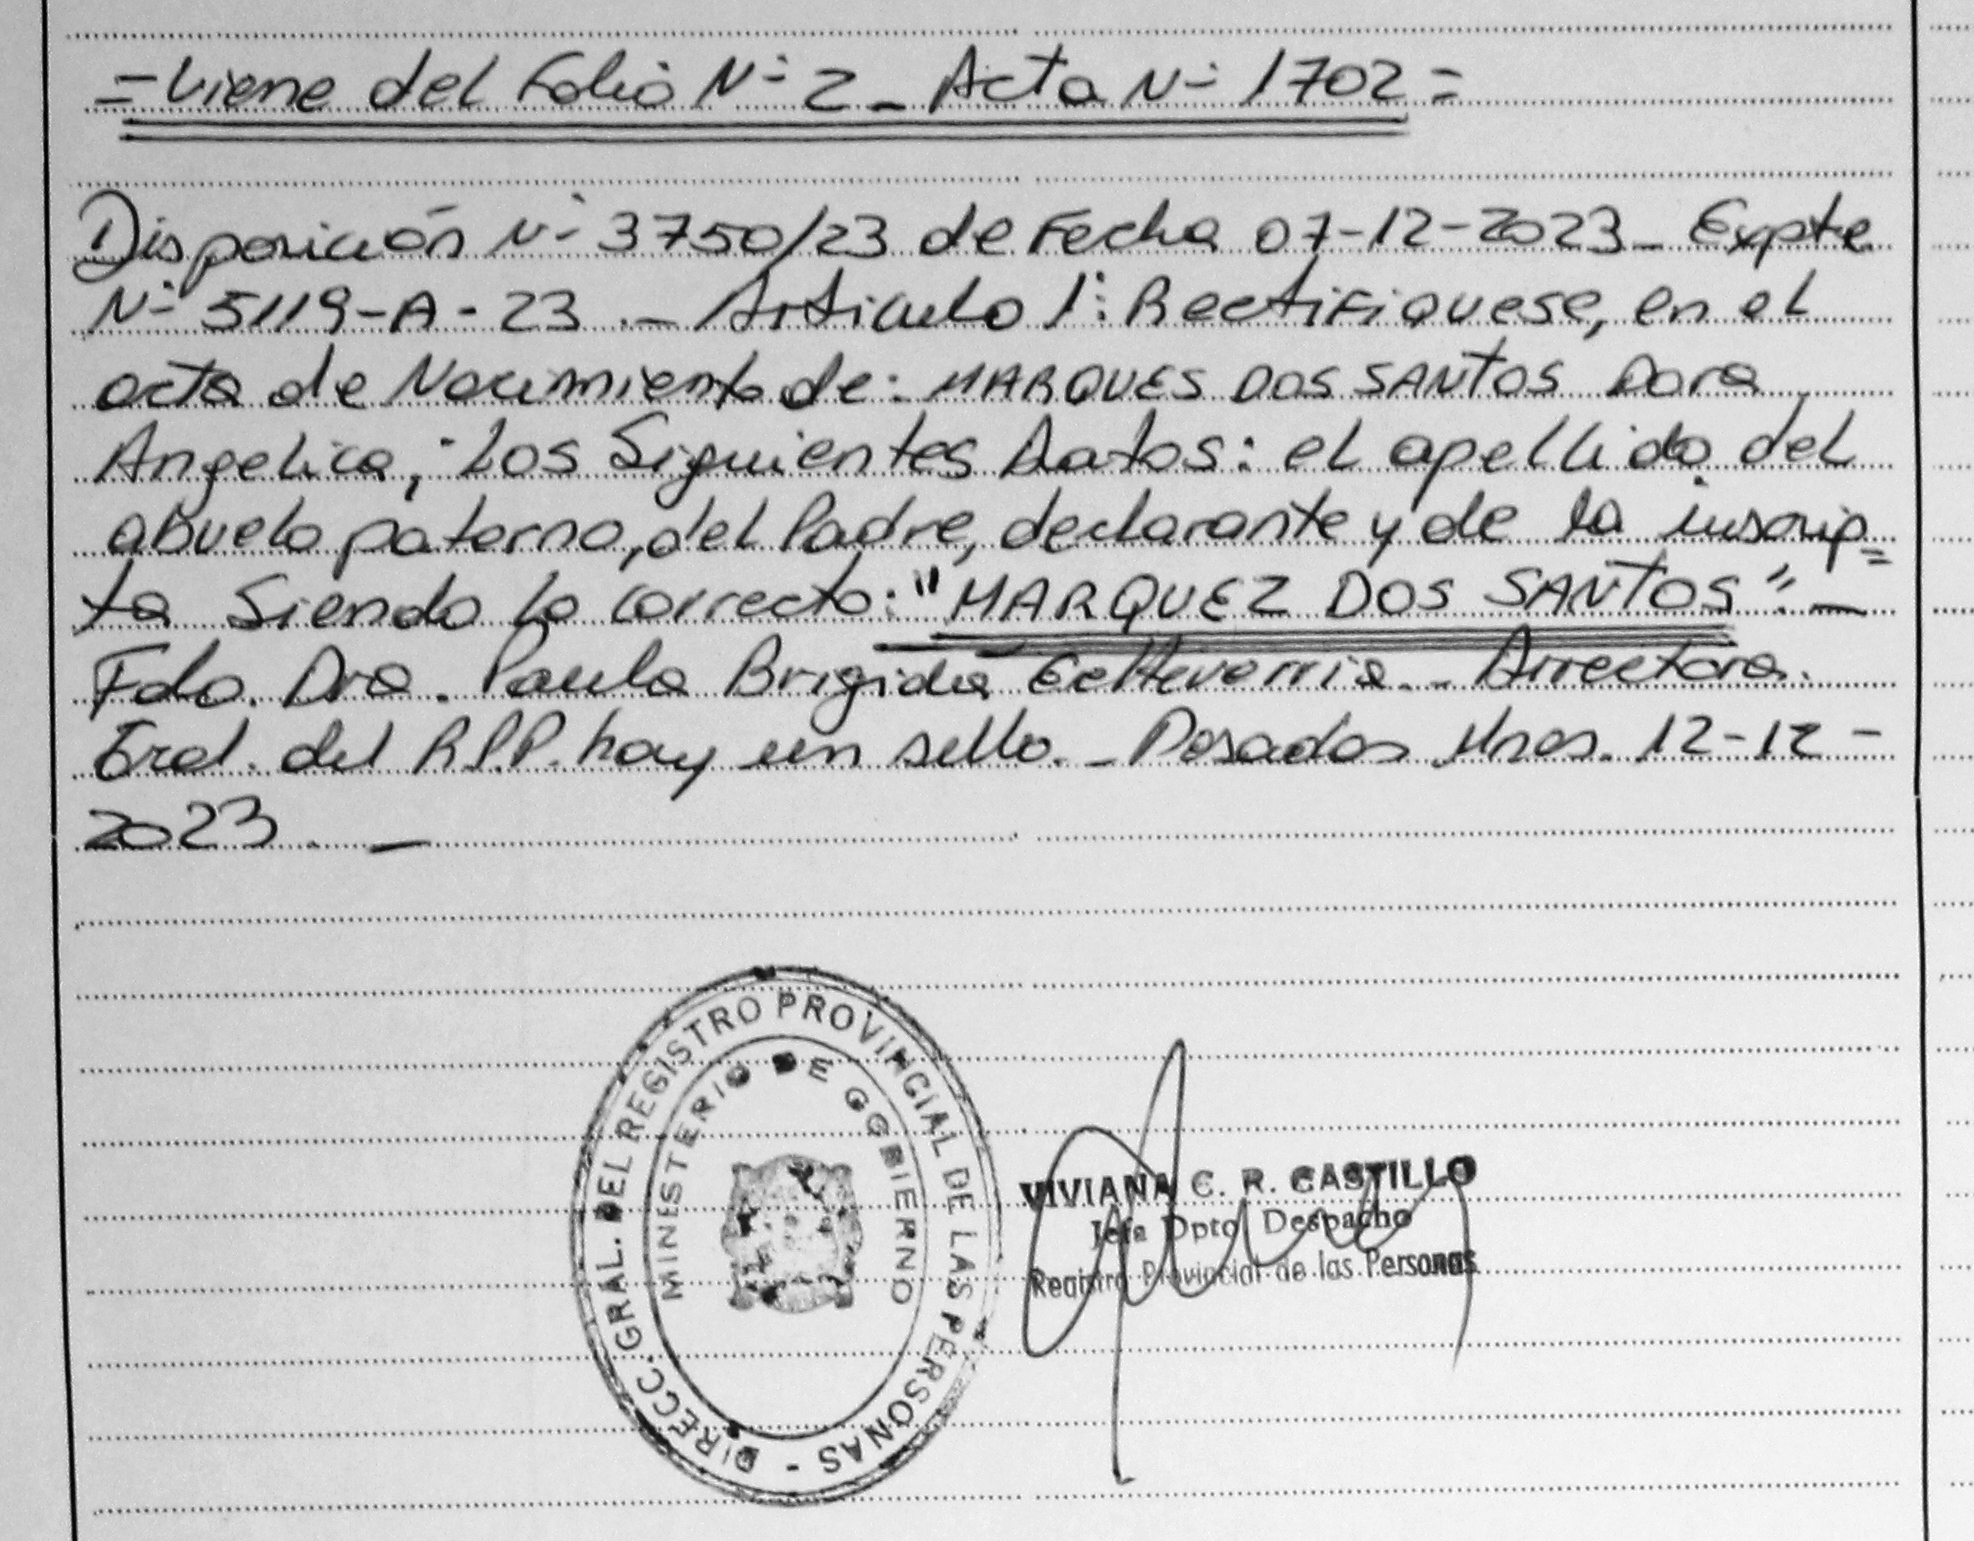 = Viene del Folio Nº 2 _ Acta Nº 1702 =
Disposición Nº 3750/23 de Fecha 07-12-2023_ Expte
Nº 5119-A-23 ._ Artículo 1º: Rectifiquese, en el
acta de Nacimiento de: MARQUES DOS SANTOS Dora
Angelica, Los Siguientes Datos: el apellido del
abuelo paterno, del Padre, declarante y de la inscrip=
ta Siendo lo correcto: "MARQUEZ DOS SANTOS" _
Fdo. Dra. Paula Brigida Echeverria _ Directora
Gral. del R.P.P. hay un sello. _ Posadas Mnes. 12-12-
2023. _
DIRECC. GRAL. DEL REGISTRO PROVINCIAL DE LAS PERSONAS -
MINISTERIO DE GOBIERNO
VIVIANA C. R. CASTILLO
Jefa Dpto Despacho
Registro Provincial de las Personas